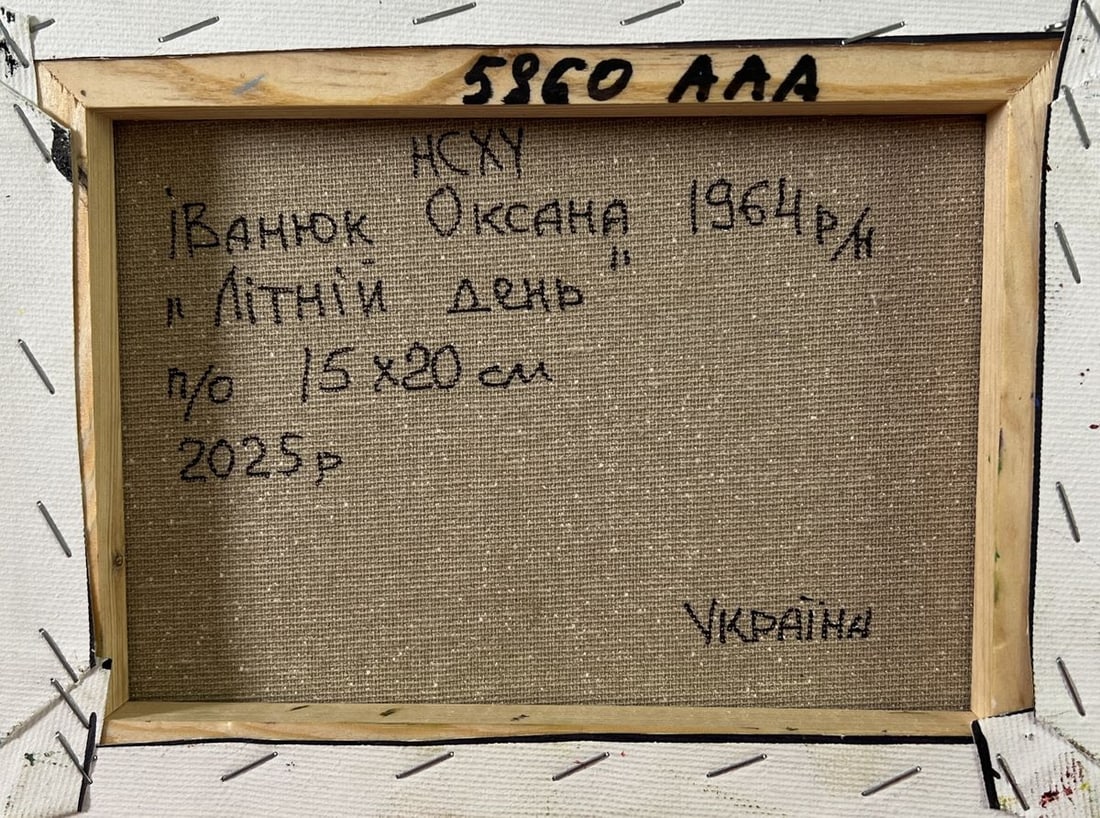 5860 ААА
НСХУ
Іванюк Оксана 1964р/н
"Літній день"
п/о 15х20 см
2025р
Україна